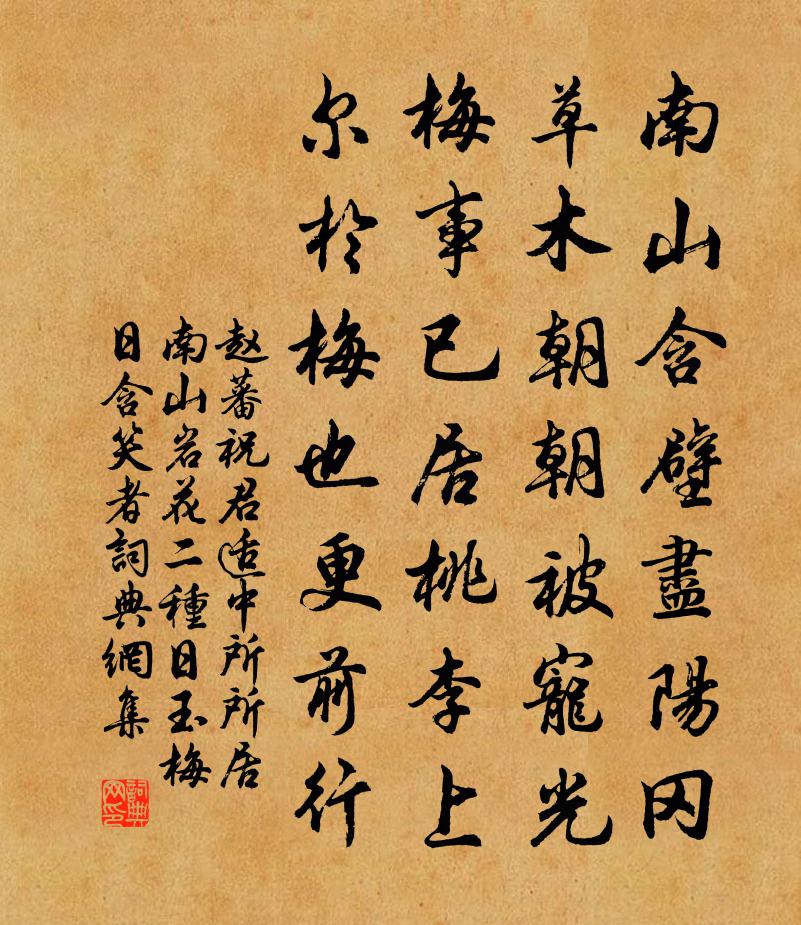 南山含璧盡陽冈
草木朝朝被寵光
梅事已居桃李上
尔於梅也更前行
赵蕃祝君适中所所居
南山岩花二種日玉梅
日含笑者詞典網集
詞典
网印